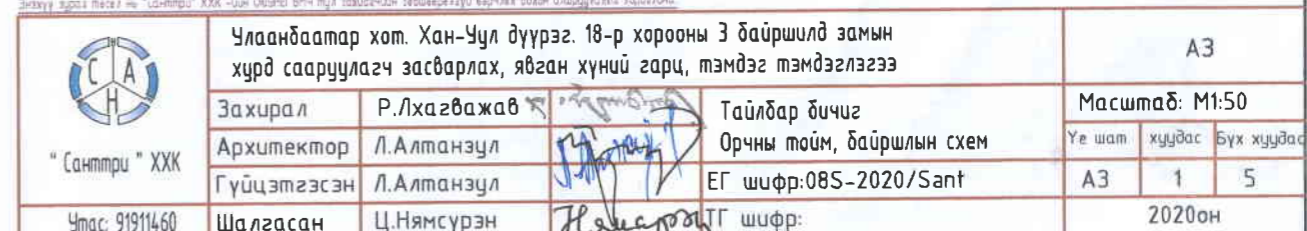 С А Н
" Санттри " ХХК
Утас: 91911460
Улаанбаатар хот. Хан-Уул дүүрэг. 18-р хорооны 3 байршилд замын
хурд сааруулагч засварлах, явган хүний гарц, тэмдэг тэмдэглэгээ
А3
Захирал Р.Лхагважав
Архитектор Л.Алтанзул
Гүйцэтгэсэн Л.Алтанзул
Шалгасан Ц.Нямсүрэн
Тайлбар бичиг
Орчны тойм, байршлын схем
ЕГ шифр:08S-2020/Sant
ТГ шифр:
Масштаб: М1:50
Үе шат хуудас Бүх хуудас
А3 1 5
2020он